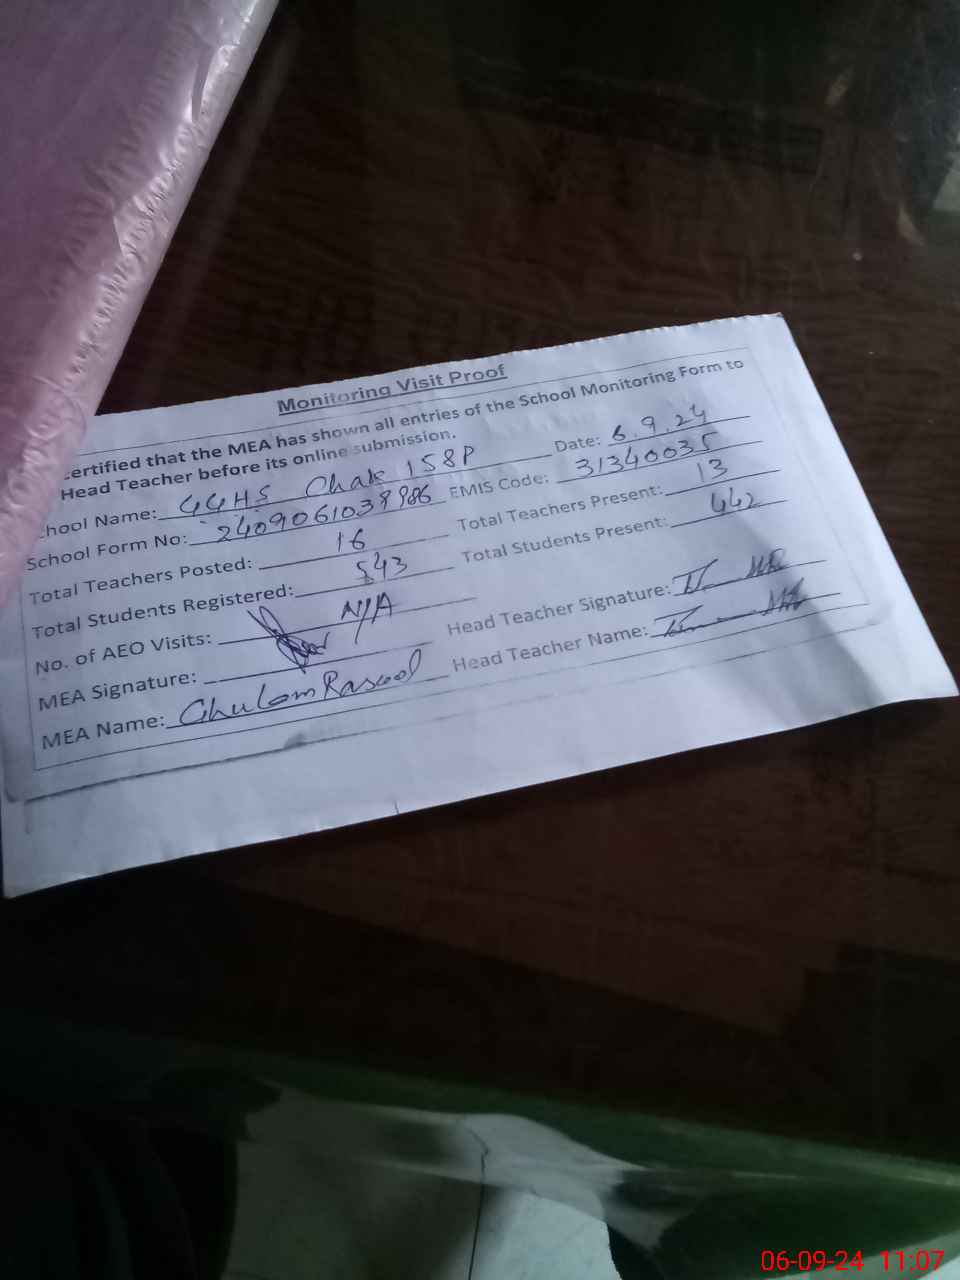 Monitoring Visit Proof
Certified that the MEA has shown all entries of the School Monitoring Form to
Head Teacher before its online submission.
School Name: GGHS Chak 158P Date: 6.9.24
School Form No: 2409061038986 EMIS Code: 31340035
Total Teachers Posted: 16 Total Teachers Present: 13
Total Students Registered: 543 Total Students Present: 442
No. of AEO Visits: N/A
MEA Signature: Head Teacher Signature:
MEA Name: Ghulam Rasool Head Teacher Name:
06-09-24 11:07